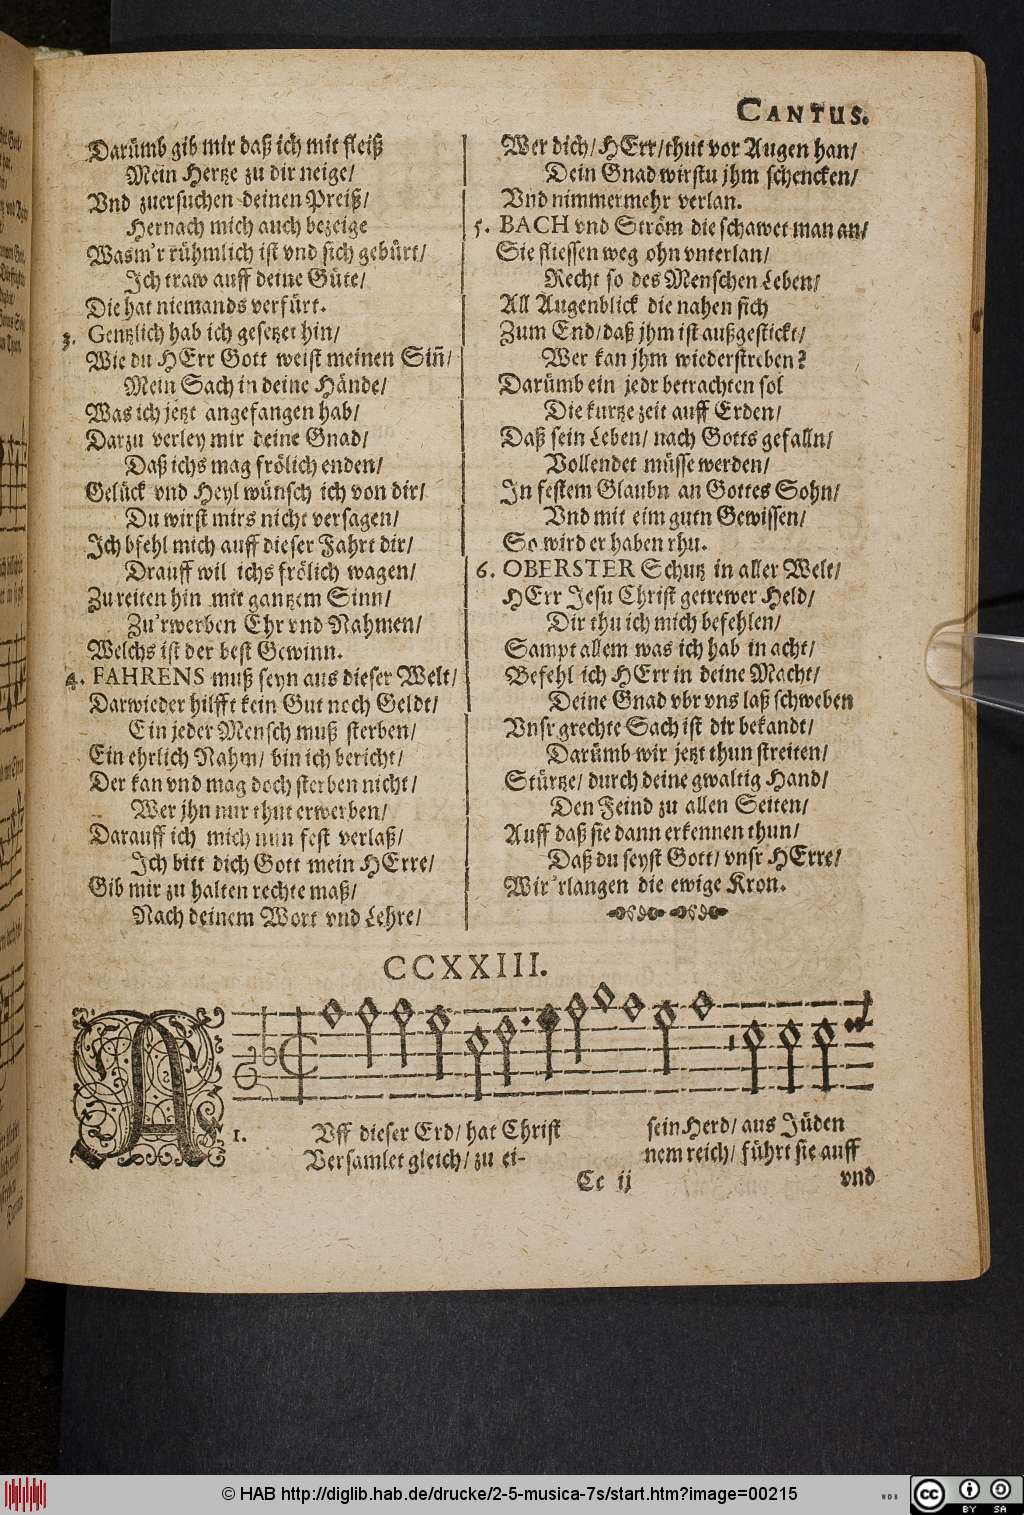 CANTUS.
Darümb gib mir daß ich mit fleiß
Mein Hertze zu dir neige/
Vnd zuersuchen deinen Preiß/
Hernach mich auch bezeige
Wasm'r rühmlich ist vnd sich gebürt/
Ich traw auff deine Güte/
Die hat niemands verfürt.
3. Gentzlich hab ich gesetzet hin/
Wie du HErr Gott weist meinen Siñ/
Mein Sach in deine Hände/
Was ich jetzt angefangen hab/
Darzu verley mir deine Gnad/
Daß ichs mag frölich enden/
Gelück vnd Heyl wünsch ich von dir/
Du wirst mirs nicht versagen/
Ich bfehl mich auff dieser Fahrt dir/
Drauff wil ichs frölich wagen/
Zu reiten hin mit gantzem Sinn/
Zu'rwerben Ehr vnd Nahmen/
Welchs ist der best Gewinn.
4. FAHRENS muß seyn aus dieser Welt/
Darwieder hilfft kein Gut noch Geldt/
Ein jeder Mensch muß sterben/
Ein ehrlich Nahm/ bin ich bericht/
Der kan vnd mag doch sterben nicht/
Wer jhn nur thut erwerben/
Darauff ich mich nun fest verlaß/
Ich bitt dich Gott mein HErre/
Gib mir zu halten rechte maß/
Nach deinem Wort vnd Lehre/
Wer dich/ HErr/ thut vor Augen han/
Dein Gnad wirstu jhm schencken/
Vnd nimmermehr verlan.
5. BACH vnd Ström die schawet man an/
Sie fliessen weg ohn vnterlan/
Recht so des Menschen Leben/
All Augenblick die nahen sich
Zum End/ daß jhm ist außgestickt/
Wer kan jhm wiederstreben?
Darümb ein jedr betrachten sol
Die kurtze zeit auff Erden/
Daß sein Leben/ nach Gotts gefalln/
Vollendet müsse werden/
In festem Glaubn an Gottes Sohn/
Vnd mit eim gutn Gewissen/
So wird er haben rhu.
6. OBERSTER Schutz in aller Welt/
HErr Jesu Christ getrewer Held/
Dir thu ich mich befehlen/
Sampt allem was ich hab in acht/
Befehl ich HErr in deine Macht/
Deine Gnad vbr vns laß schweben
Vnsr grechte Sach ist dir bekandt/
Darümb wir jetzt thun streiten/
Stürtze/ durch deine gwaltig Hand/
Den Feind zu allen Seiten/
Auff daß sie dann erkennen thun/
Daß du seyst Gott/ vnsr HErre/
Wir'rlangen die ewige Kron.
CCXXIII.
A
1. Vff dieser Erd/ hat Christ sein Herd/ aus Jüden
Versamlet gleich/ zu ei- nem reich/ führt sie auff
Cc ij vnd
© HAB http://diglib.hab.de/drucke/2-5-musica-7s/start.htm?image=00215
WDB
cc BY SA